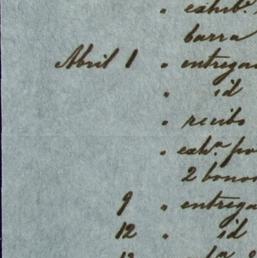 " exhib.ª
barra
Abril 1 " entrega
" id
" recibo
" exh.ª po
2 bono
9 " entrega
12 " id